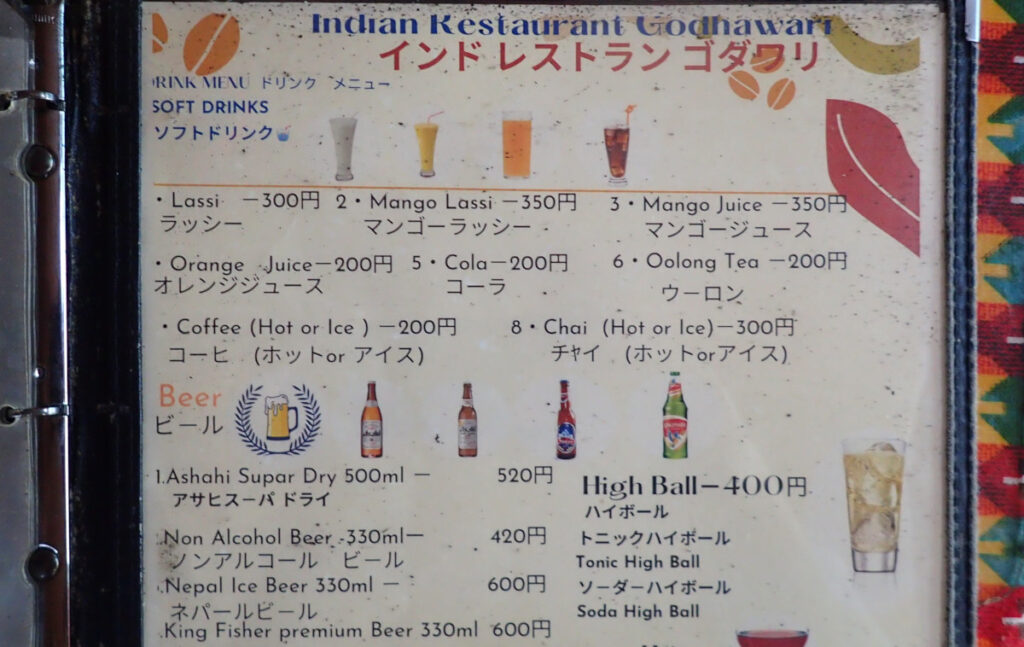 Indian Restaurant Godhawari
インド レストラン ゴダワリ
DRINK MENU ドリンク メニュー
SOFT DRINKS
ソフトドリンク
・Lassi －300円 2・Mango Lassi －350円 3・Mango Juice －350円
ラッシー マンゴーラッシー マンゴージュース
・Orange Juice－200円 5・Cola－200円 6・Oolong Tea －200円
オレンジジュース コーラ ウーロン
・Coffee (Hot or Ice ) －200円 8・Chai (Hot or Ice)－300円
コーヒ (ホットor アイス) チャイ (ホットorアイス)
Beer
ビール
1.Ashahi Supar Dry 500ml － 520円
アサヒスーパ ドライ
.Non Alcohol Beer -330ml－ 420円
ノンアルコール ビール
.Nepal Ice Beer 330ml － 600円
ネパールビール
.King Fisher premium Beer 330ml 600円
High Ball－400円
ハイボール
トニックハイボール
Tonic High Ball
ソーダーハイボール
Soda High Ball